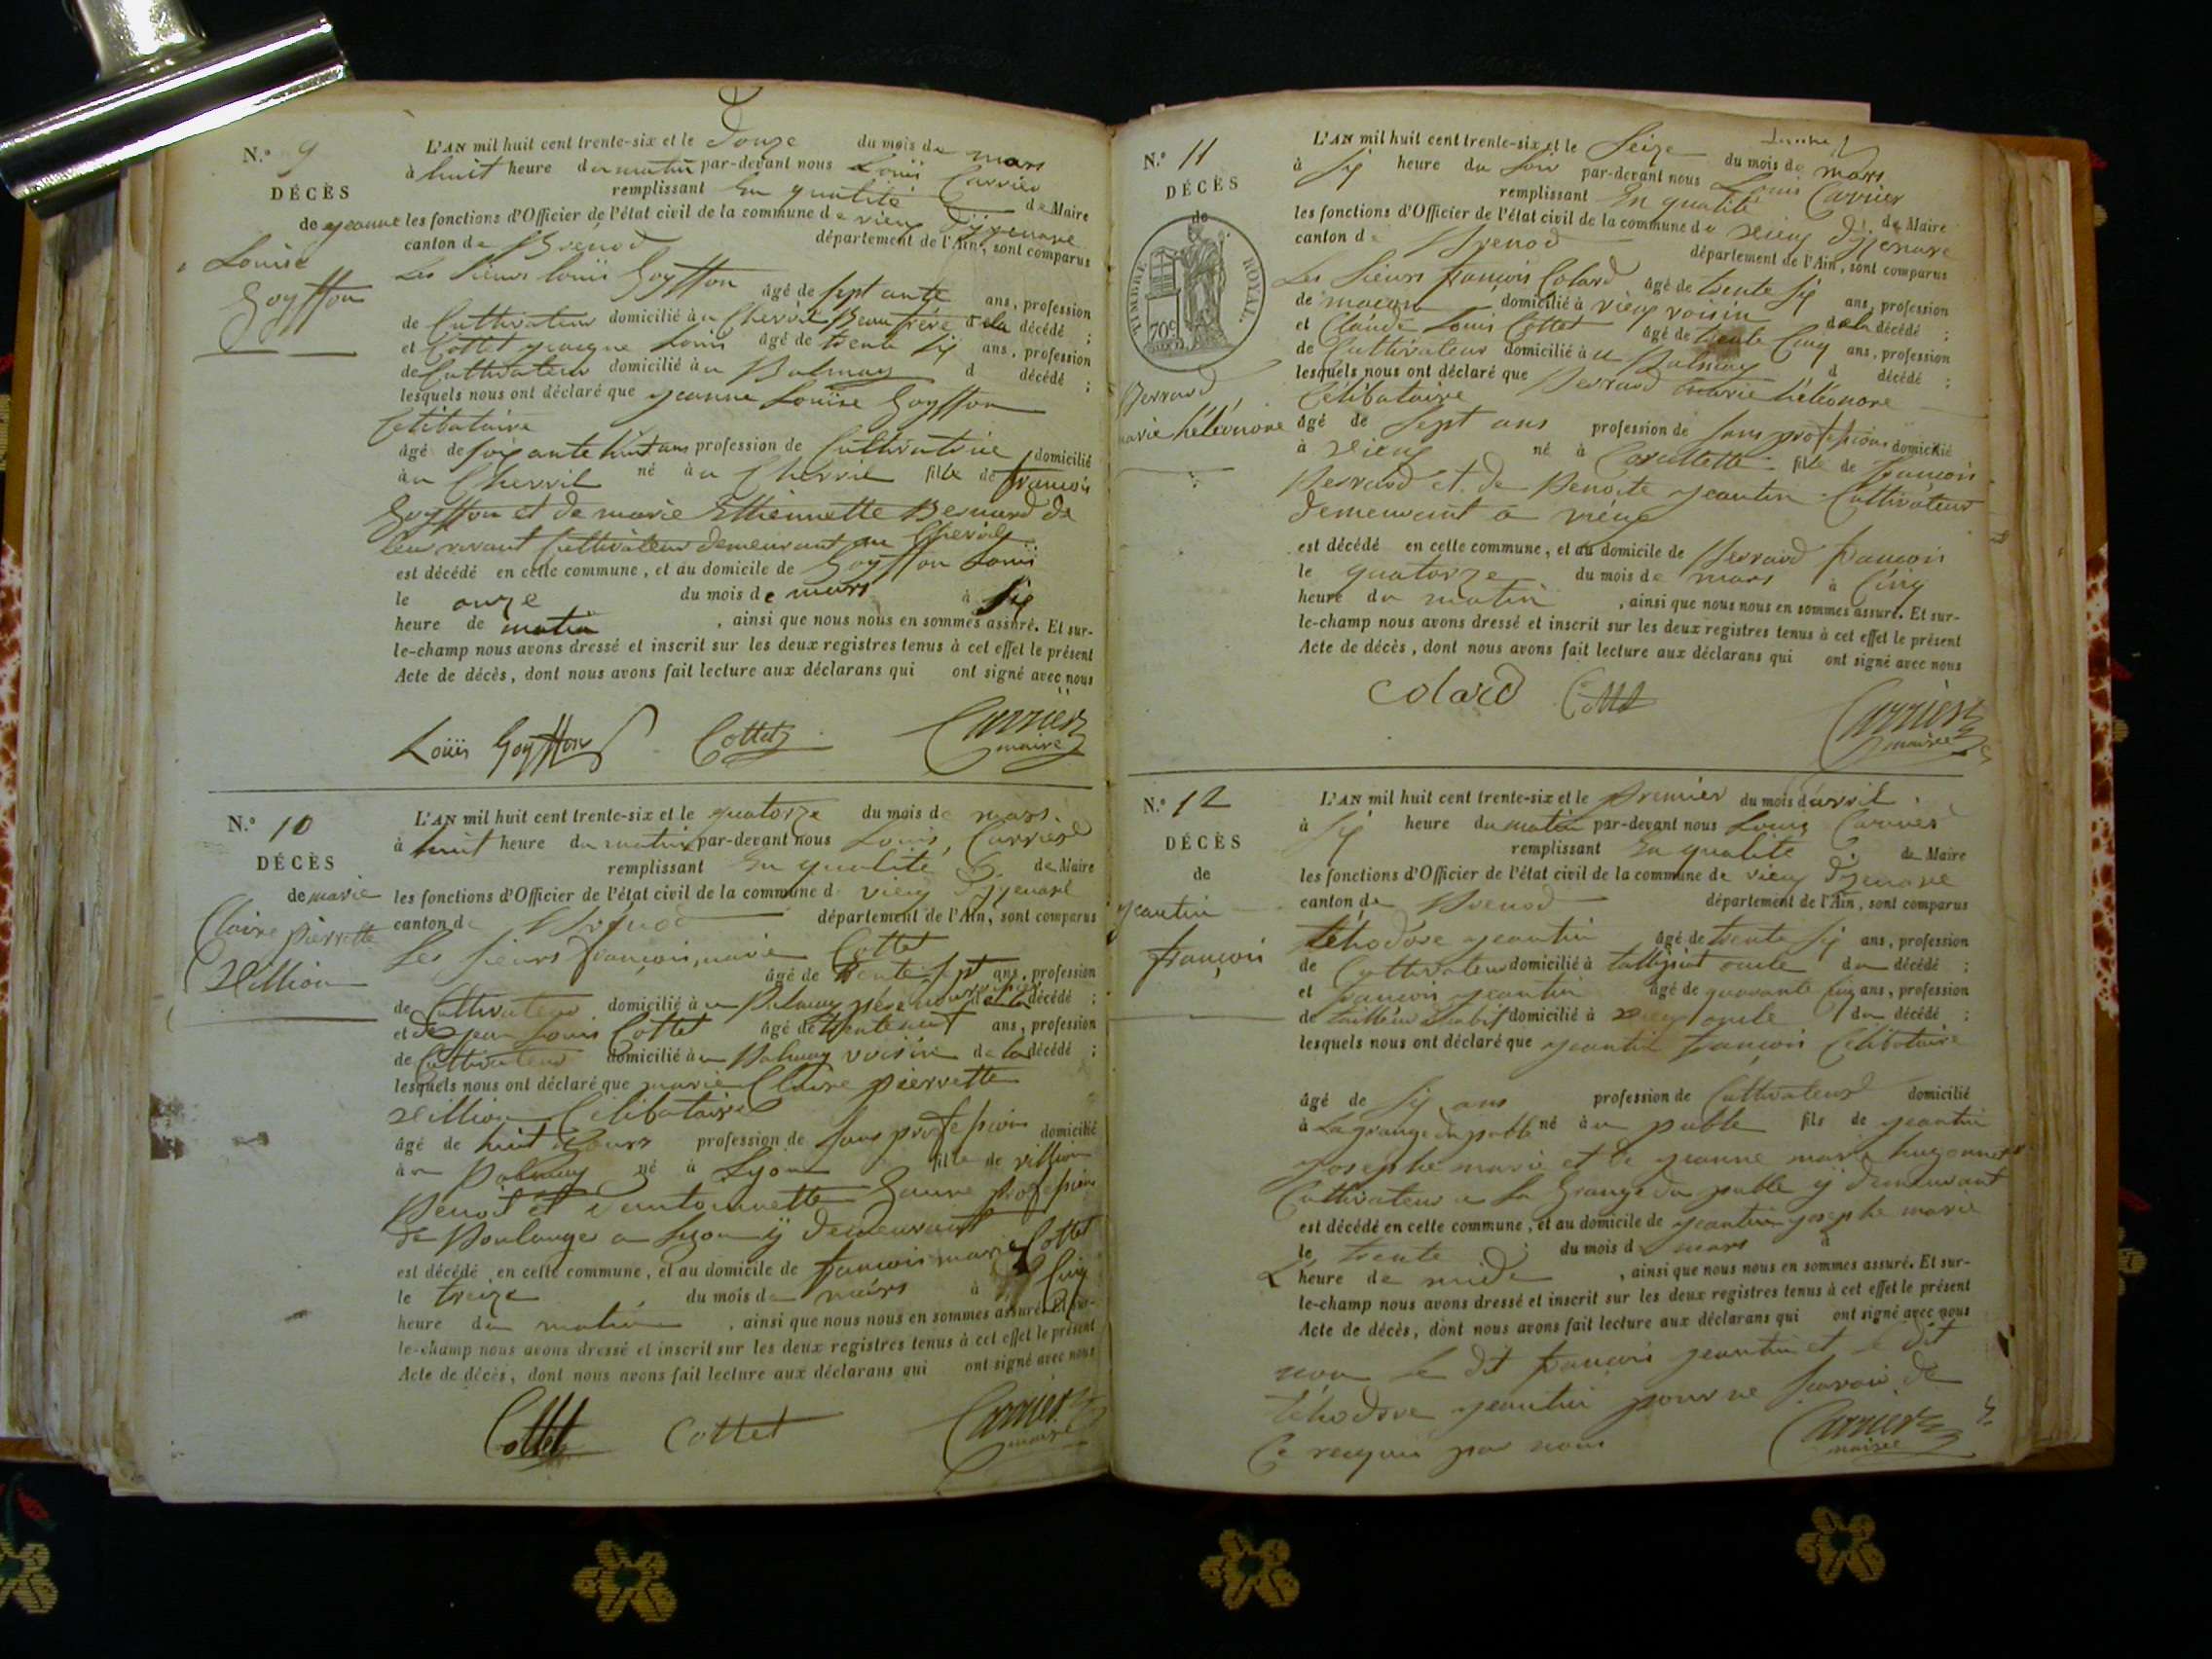 N.° 9
DÉCÈS
de jeanne
Louise
Goyffon
L'AN mil huit cent trente-six et le Douze du mois de mars
à huit heure du matin par-devant nous Louis Carrier
remplissant En qualité de Maire
les fonctions d'Officier de l'état civil de la commune de vieux D'jzenave
canton de Brenod département de l'Ain, sont comparus
Les Sieurs Louis Goyffon âgé de sept ante ans, profession
de Cultivateur domicilié au Chevril Beau frère de la décédé ;
et Cottet jacque Louis âgé de trente Six ans, profession
de Cultivateur domicilié au Balmay d décédé ;
lesquels nous ont déclaré que jeanne Louise Goyffon
Célibataire
âgé de soixante huit ans profession de Cultivatrice domicilié
au Chevril né au Chevril fille de francois
Goyffon et de marie Ethiennette Bernard de
leur vivant Cultivateur demeurant au Chevril
est décédé en cette commune, et au domicile de Goyffon Louis
le onze du mois de mars à Six
heure de matin , ainsi que nous nous en sommes assuré. Et sur-
le-champ nous avons dressé et inscrit sur les deux registres tenus à cet effet le présent
Acte de décès, dont nous avons fait lecture aux déclarans qui ont signé avec nous
Louis Goyffon Cottet Carrier
maire
N.° 10
DÉCÈS
de marie
Claire pierrette
Villion
L'AN mil huit cent trente-six et le quatorze du mois de mars
à huit heure du matin par-devant nous Louis Carrier
remplissant En qualité de Maire
les fonctions d'Officier de l'état civil de la commune d vieux D'jzenave
canton de Brenod département de l'Ain, sont comparus
Les Sieurs francois marie Cottet
âgé de trente sept ans, profession
de Cultivateur domicilié au Balmay père nourricier de la décédé ;
et de jean Louis Cottet âgé de trente neuf ans, profession
de Cultivateur domicilié au Balmay voisin de la décédé ;
lesquels nous ont déclaré que marie Claire pierrette
Villion Célibataire
âgé de huit jours profession de sans profession domicilié
au Balmay né à Lyon fille de villion
Benoit et d'antoinette profession
de Boulanger a Lyon y demeurant
est décédé en cette commune, et au domicile de francois marie Cottet
le treize du mois de mars à Cinq
heure du matin , ainsi que nous nous en sommes assuré. Et sur-
le-champ nous avons dressé et inscrit sur les deux registres tenus à cet effet le présent
Acte de décès, dont nous avons fait lecture aux déclarans qui ont signé avec nous
Cottet Cottet Carrier
maire
N.° 11
DÉCÈS
de
TIMBRE ROYAL.
70c
Berrard
marie héléonore
L'AN mil huit cent trente-six et le Seize du mois de mars
à Six heure du Soir par-devant nous Louis Carrier
remplissant En qualité de Maire
les fonctions d'Officier de l'état civil de la commune de vieux D'jzenave
canton d Brenod département de l'Ain, sont comparus
Les Sieurs francois Colard âgé de trente Six ans, profession
de macon domicilié à vieux voisin de la décédé ;
et Claude Louis Cottet âgé de trente Cinq ans, profession
de Cultivateur domicilié au Balmay d décédé ;
lesquels nous ont déclaré que Berrard marie héléonore
Célibataire
âgé de Sept ans profession de sans profession domicilié
à vieux né à fille de francois
Berrard et de Benoite jeantin Cultivateur
demeurant à vieux
est décédé en cette commune, et au domicile de Berrard francois
le quatorze du mois de mars à Cinq
heure du matin , ainsi que nous nous en sommes assuré. Et sur-
le-champ nous avons dressé et inscrit sur les deux registres tenus à cet effet le présent
Acte de décès, dont nous avons fait lecture aux déclarans qui ont signé avec nous
Colard Cottet Carrier
maire
N.° 12
DÉCÈS
de
jeantin
françois
L'AN mil huit cent trente-six et le Premier du mois d'avril
à Six heure du matin par-devant nous Louis Carrier
remplissant En qualité de Maire
les fonctions d'Officier de l'état civil de la commune de vieux D'jzenave
canton de Brenod département de l'Ain, sont comparus
téhodore jeantin âgé de trente Six ans, profession
de Cultivateur domicilié à oncle du décédé ;
et francois jeantin âgé de quarante Cinq ans, profession
de tailleur d'habit domicilié à vieux oncle du décédé ;
lesquels nous ont déclaré que jeantin francois Célibataire
âgé de Six ans profession de Cultivateur domicilié
à La grange du poble né au poble fils de jeantin
josephe marie et de jeanne marie
Cultivateur a La Grange du poble y demeurant
est décédé en cette commune, et au domicile de jeantin josephe marie
le trente du mois d mars à
L heure de midi , ainsi que nous nous en sommes assuré. Et sur-
le-champ nous avons dressé et inscrit sur les deux registres tenus à cet effet le présent
Acte de décès, dont nous avons fait lecture aux déclarans qui ont signé avec nous
non le dit francois jeantin et le dit
téhodore jeantin pour ne savoir de
Ce requis par nous Carrier
maire